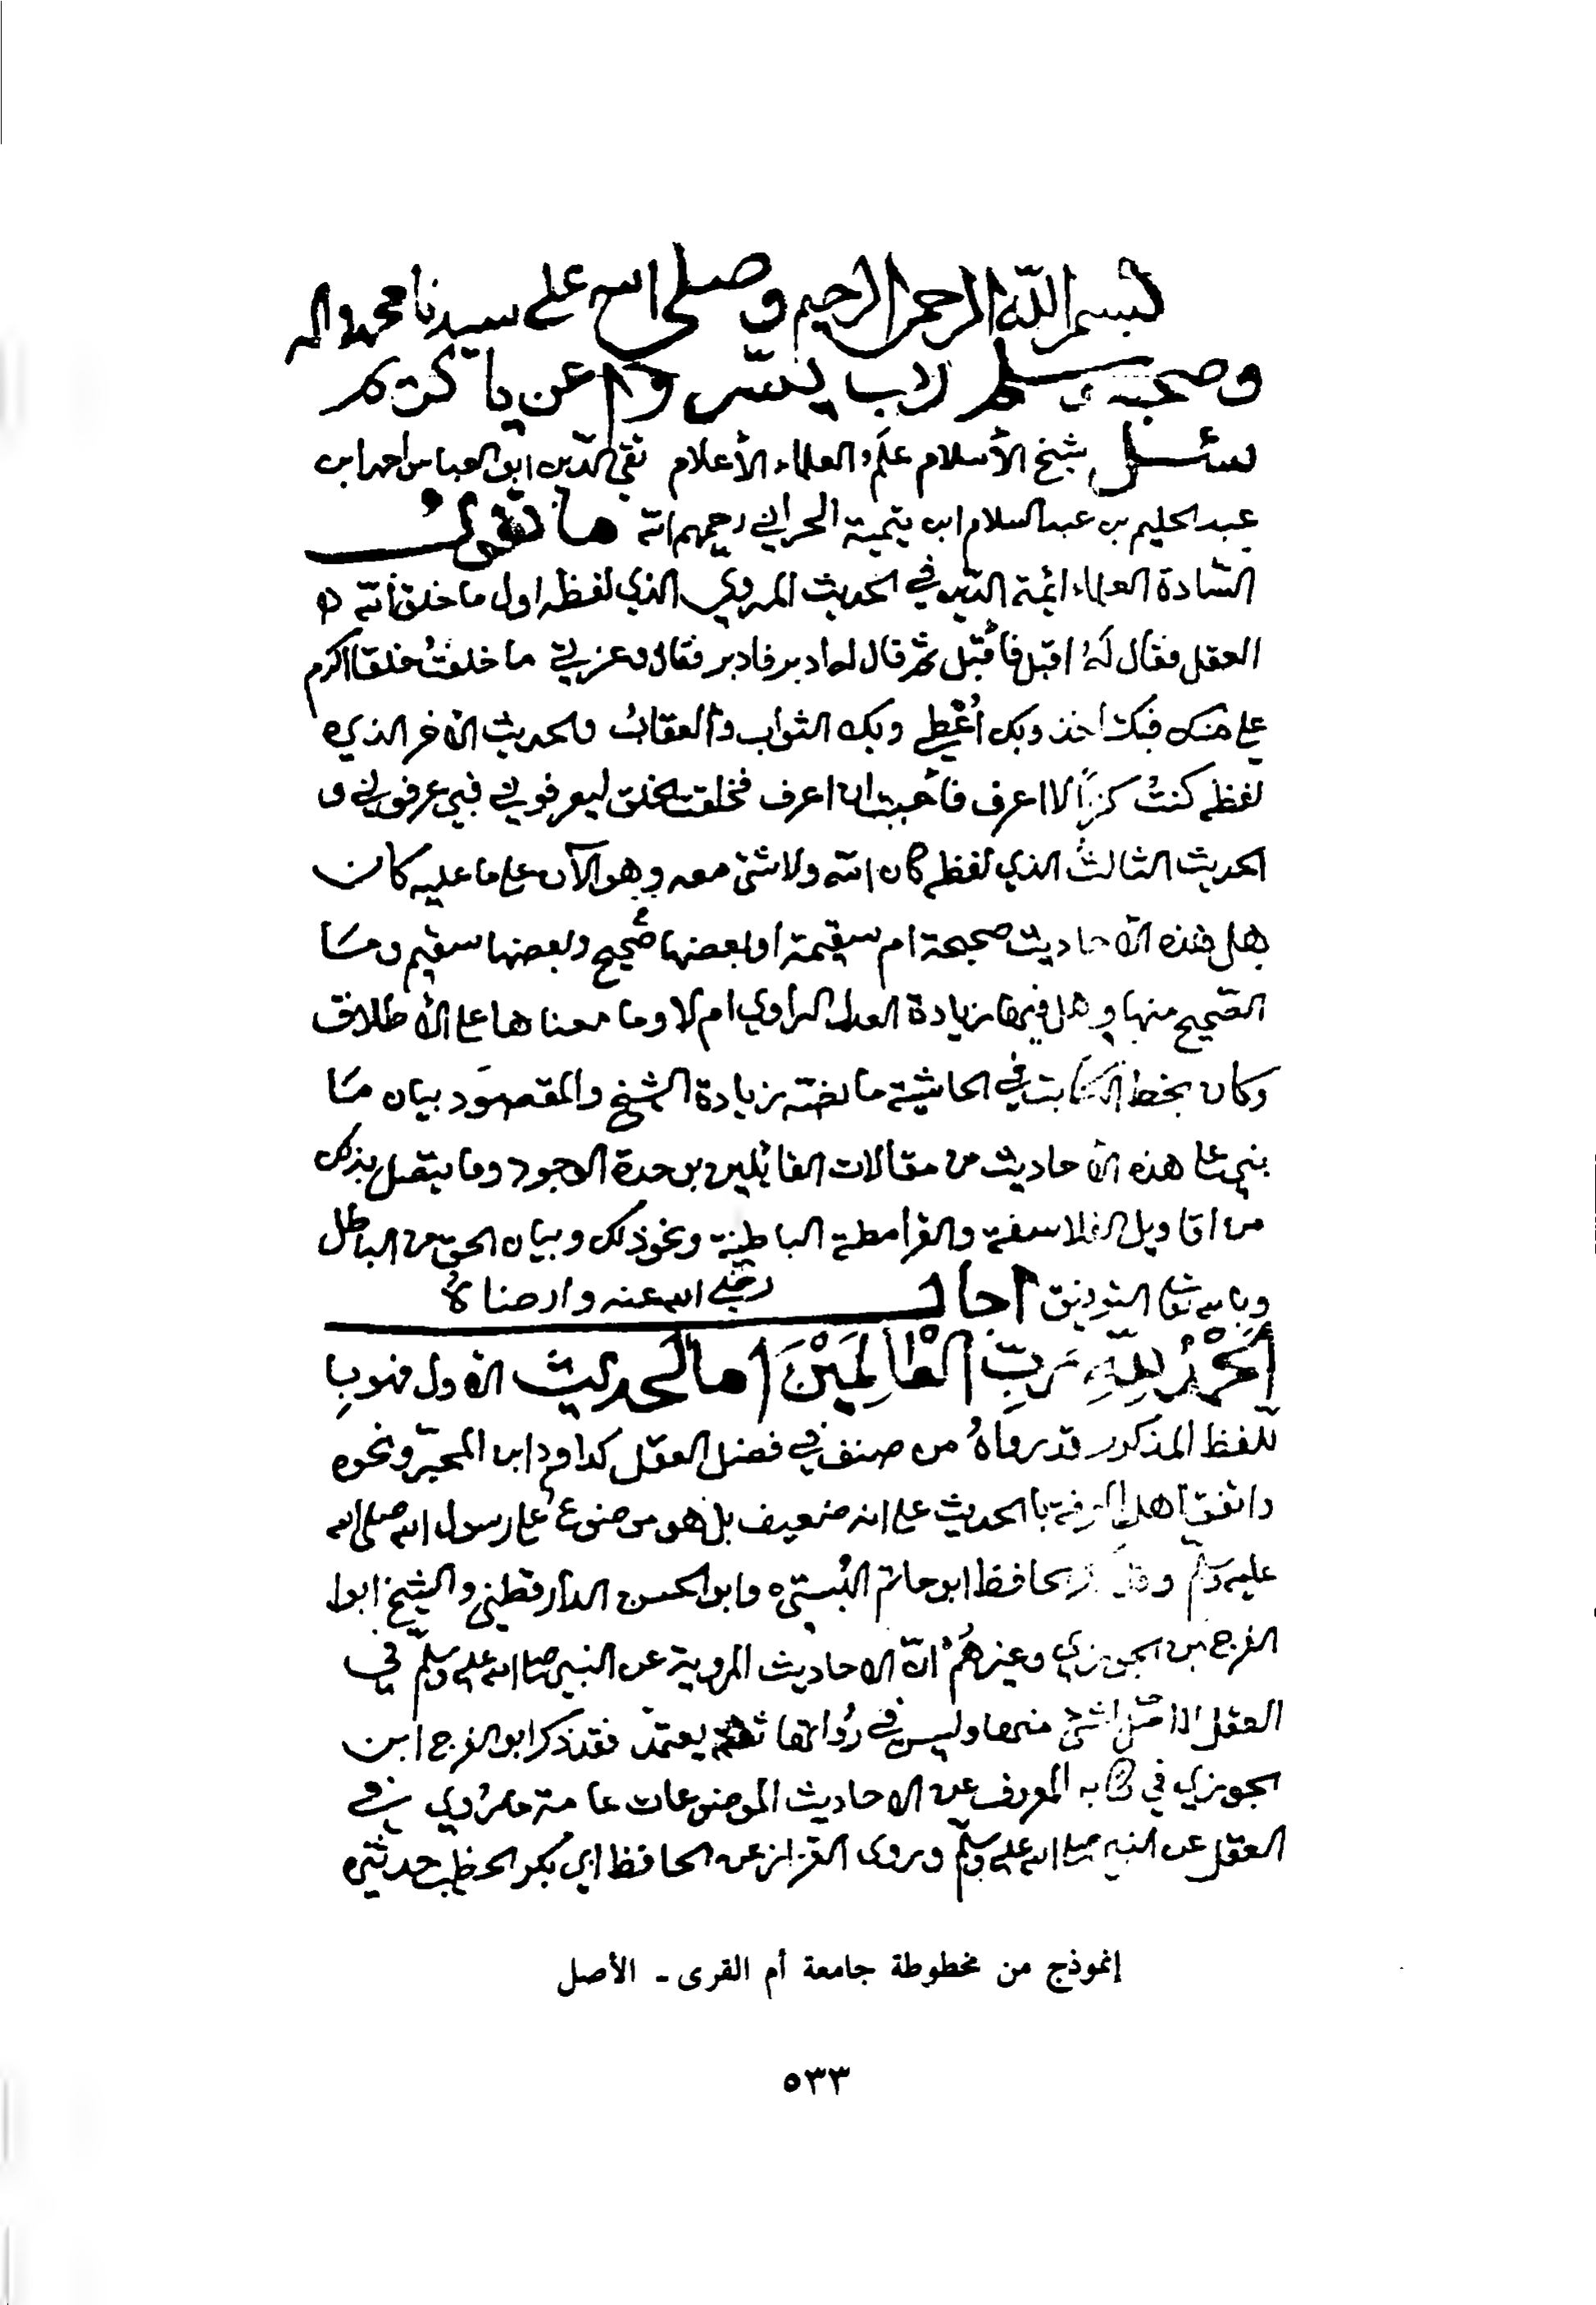 بسم الله الرحمن الرحيم وصلى الله على سيدنا محمد واله
وصحبه وسلم رب يسر واعن يا كريم
سئل شيخ الأسلام علم العلماء الأعلام تقي الدين ابو العباس احمد ابن
عبد الحليم بن عبد السلام ابن تيمية الحراني رحمهم الله ما تقول
السادة العلماء ائمة الدين في الحديث المروي الذي لفظه اول ما خلق الله
العقل فقال له اقبل فأقبل ثم قال له ادبر فادبر فقال وعزتي ما خلقت خلقا اكرم
علي منك فبك أخذ وبك أعطي وبك الثواب والعقاب والحديث الآخر الذي
لفظه كنت كنزاً لا اعرف فأحببت ان اعرف فخلقت خلق ليعرفوني فبي عرفوني و
الحديث الثالث الذي لفظه كان الله ولا شئ معه وهو الآن على ما عليه كان
هل هذه الأحاديث صحيحة ام سقيمة او بعضها صحيح وبعضها سقيم وما
الصحيح منها وهل فيها زيادة العدل الراوي ام لا وما معناها على الأطلاق
وكان بخط الكاتب في الحاشية ما نصه زيادة الشيخ والمقصود بيان ما
بني على هذه الأحاديث من مقالات القائلين بوحدة الوجود وما يتصل بذلك
من اقاويل الفلاسفة والقرامطة الباطنية ونحو ذلك وبيان الحق من الباطل
وبالله تعالى التوفيق اجاب رضي الله عنه وارضاه
الْحَمْدُ لِلَّهِ رَبِّ الْعَالَمِيْنَ اما الحديث الأول فهو با
للفظ المذكور قد رواهُ من صنف في فضل العقل كداود ابن المحبّر ونحوه
واتفق اهل المعرفة بالحديث على انه ضعيف بل هو موضوع على رسول الله صلى الله
عليه وسلم الحافظ ابو حاتم البُستي وابو الحسن الدارقطني والشيخ ابوا
الفرج بن الجوزي وغيرهُمْ انّ الاحاديث المروية عن النبي صلى الله عليه وسلم في
العقل لا اصل لشئ منها وليس في رُواتها ثقة يعتمد فقد ذكر ابو الفرج ابن
الجوزي في كتابه المعروف عن الاحاديث الموضوعات عامة ما روي في
العقل عن النبي صلى الله عليه وسلم وروى القزاز عن الحافظ ابي بكر الخطيب حدثني
إنموذج من مخطوطة جامعة أم القرى - الأصل
٥٣٣